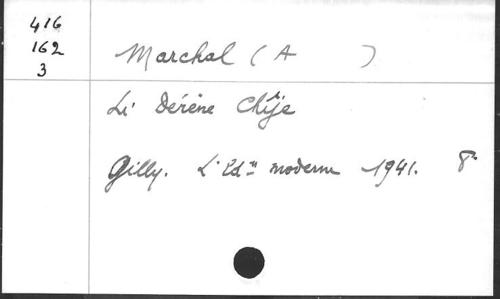 416
162
3
Marchal (A )
Li Dérène Chîje
Gilly. L'Edⁿ moderne 1941. 8°